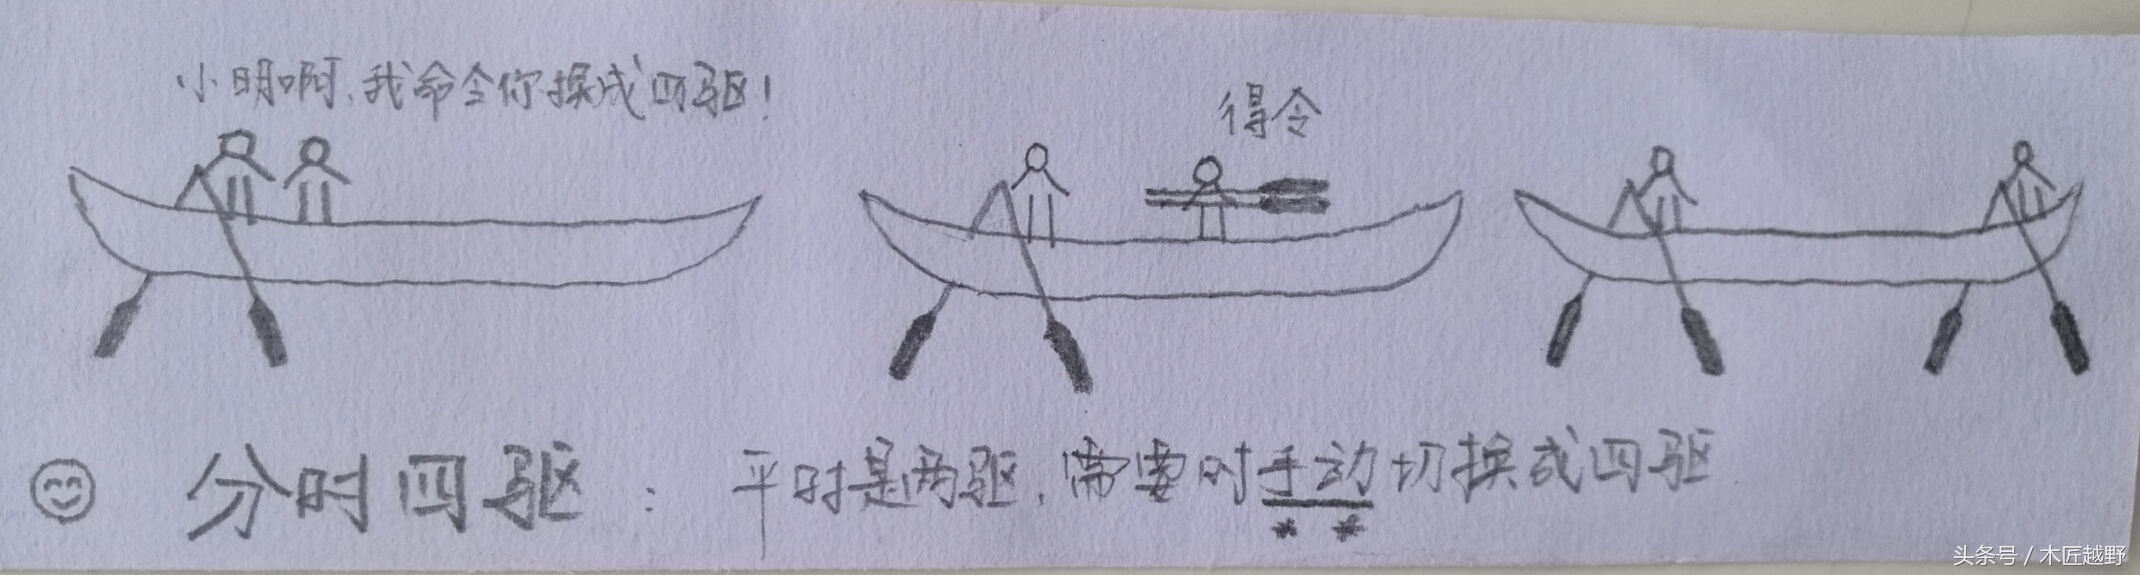 小明啊,我命令你换成四驱!
得令
分时四驱: 平时是两驱,需要时手动切换成四驱
头条号 / 木匠越野